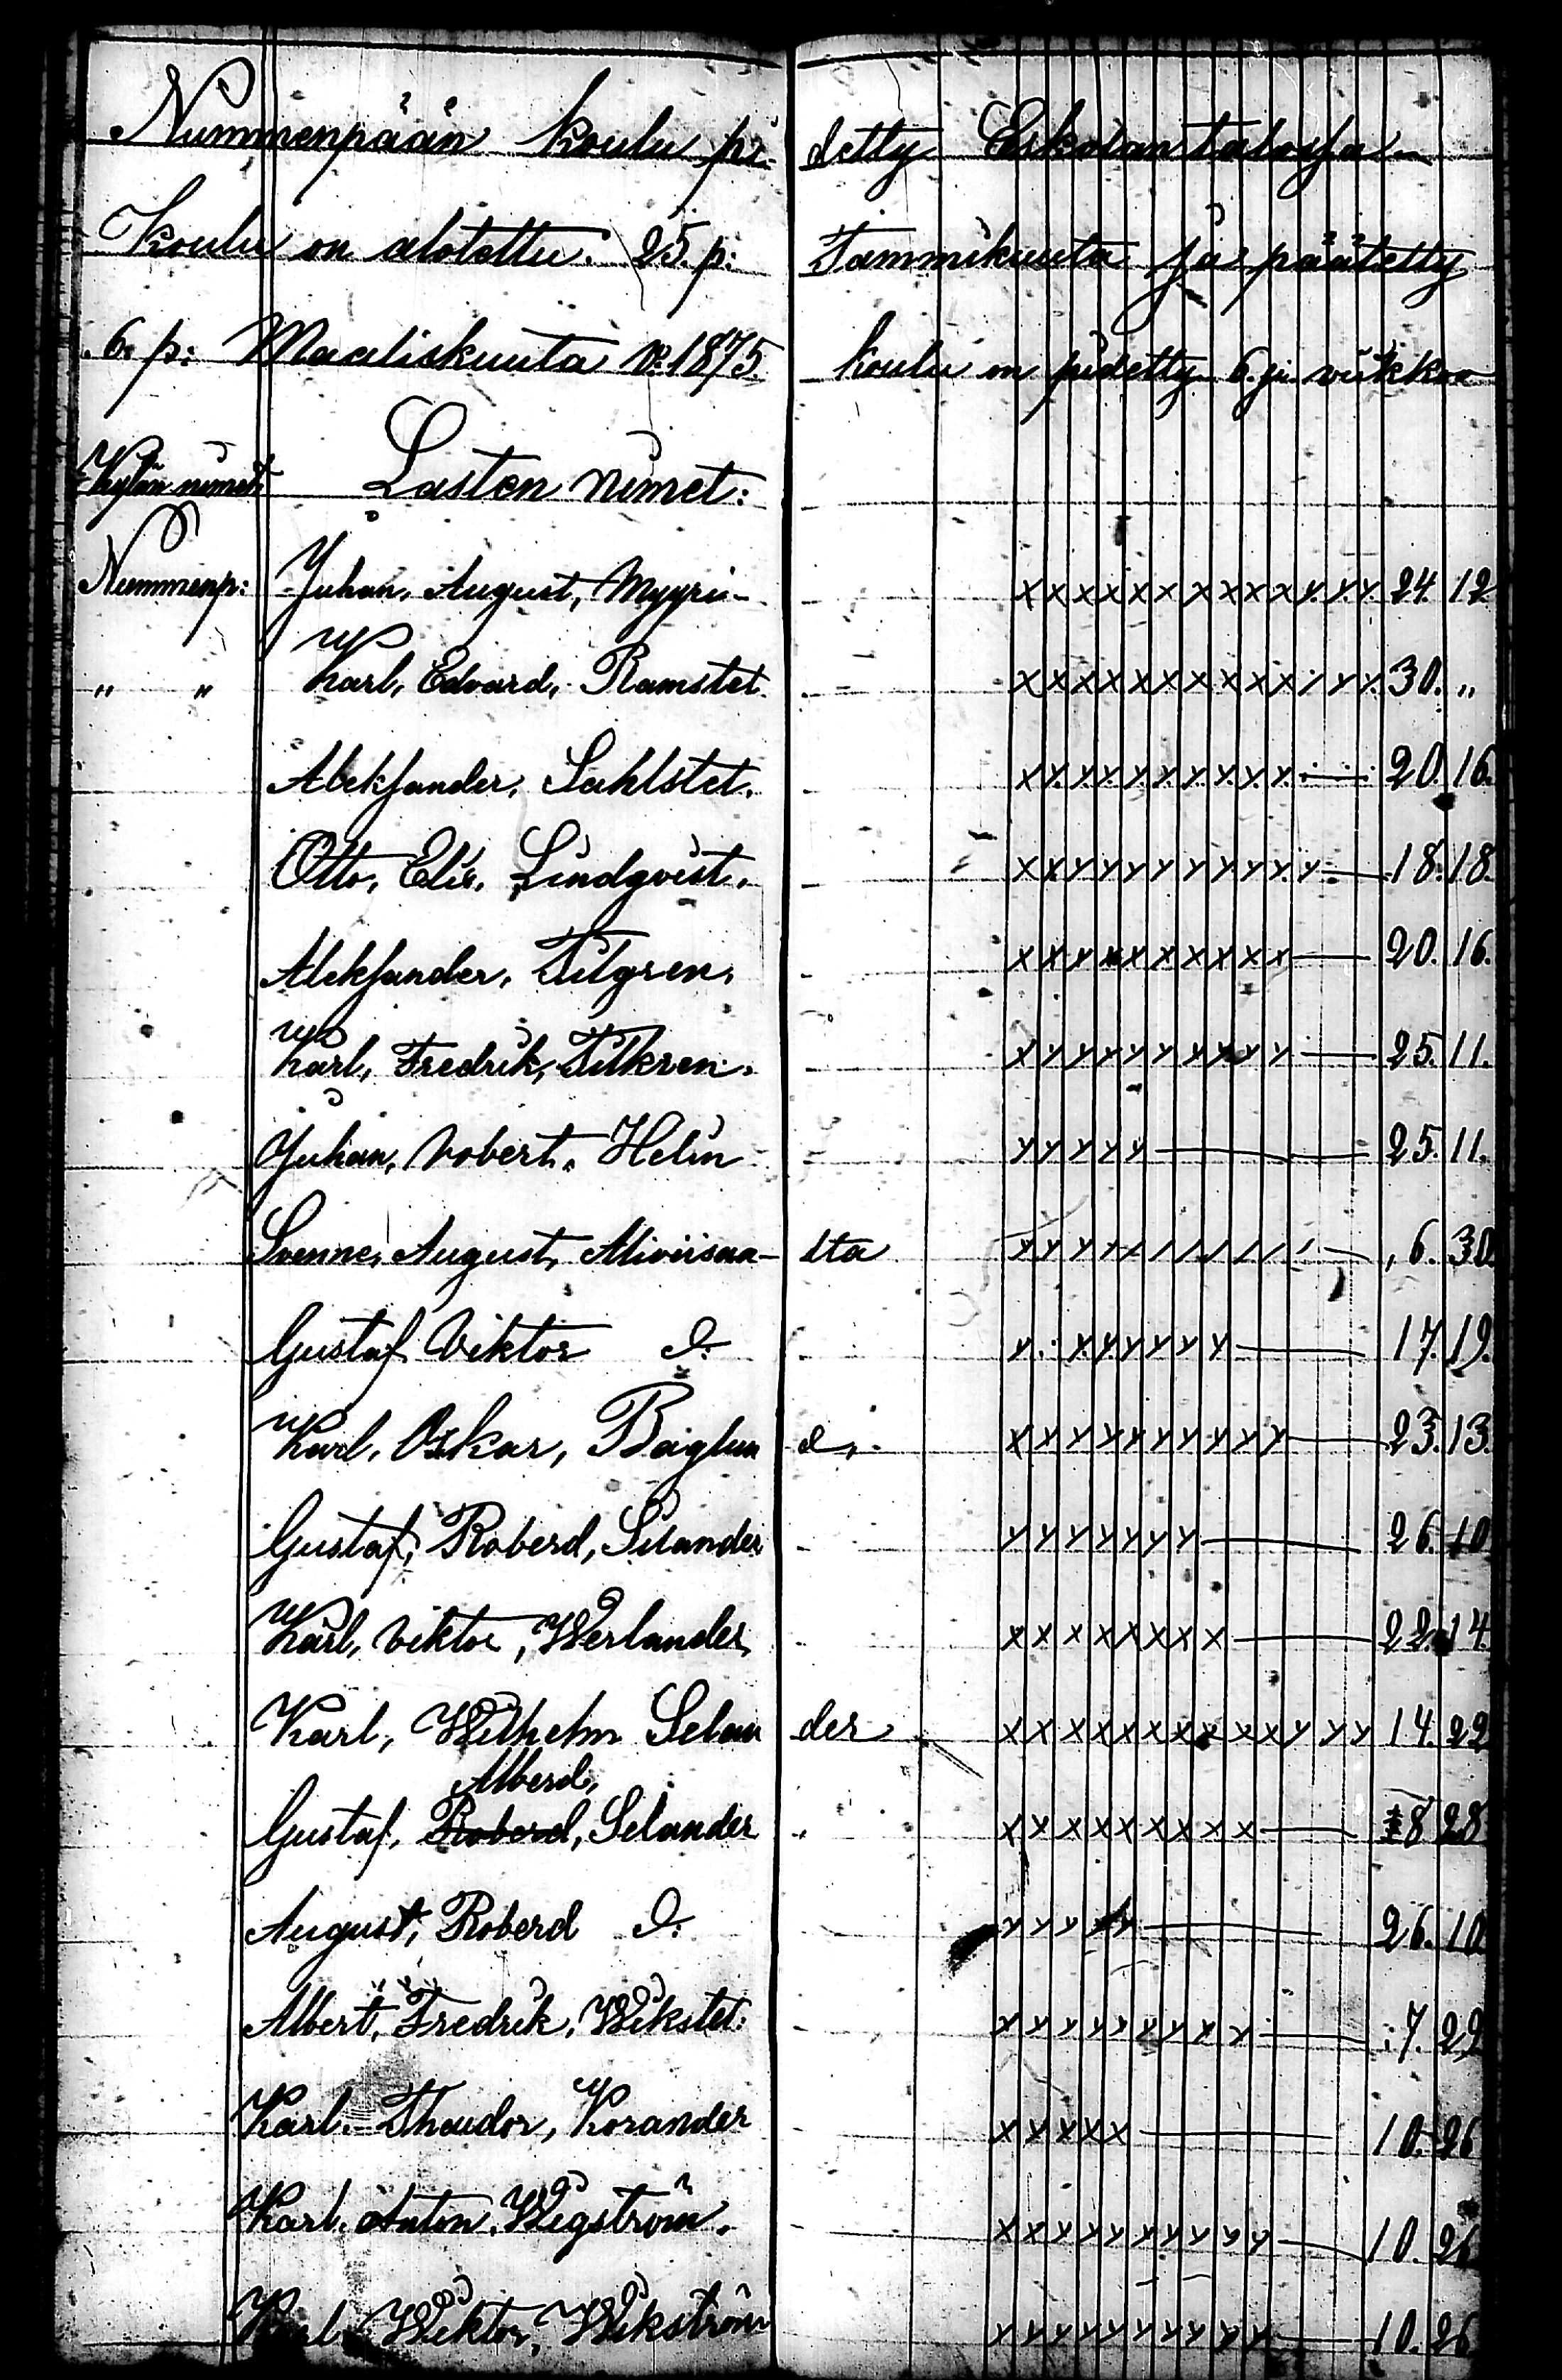 Nummenpään koulu pi- detty Eskolan talossa
Koulu on alotettu. 25. p: Tammikuuta ja päätetty
6. p: Maaliskuuta v: 1875. koulu on pidetty 6. ji viikkoa
Kylän nimet: Lasten nimet:
Nummenp: Juhan, August, Myyri- x x x x x x x x x x x x x 24. 12
" " Karl, Edvard, Ramstet. x x x x x x x x x x / x x 30. "
Aleksander, Sahlstet. x x x x x x x x x x 20. 16.
Otto, Elis, Lindqvist. x x x x x x x x x x x 18. 18.
Aleksander, Tilgren. x x x x x x x x x x 20. 16.
Karl, Fredrik, Tilkren. x x x x x x x x x x 25. 11.
Juhan, Robert, Helin x x x x x 25. 11.
Svenne, August, Aliviisaa- lta x x x x / / / / / / / 6. 30.
Gustaf Viktor D: x x x x x x x 17. 19.
Karl, Oskar, Bäiglun d, x x x x x x x x x x 23. 13.
Gustaf, Roberd, Silander x x x x x x x 26. 10
Karl, Viktor, Werlander x x x x x x x x 22. 14
Karl, Wilhelm Selan der x x x x x x x x x x x x x 14. 22
Alberd,
Gustaf, Roberd, Selander x x x x x x x x x 8 28
August, Roberd D: x x x x x 26. 10
Albert, Fredrik, Wikstet. x x x x x x x x x 7. 29
Karl. Theudor, Korander x x x x x 10. 26
Karl. Anton. Wigström. x x x x x x x x x x 10. 26
Karl Wiktor, Wikström x x x x x x x x x x 10. 26